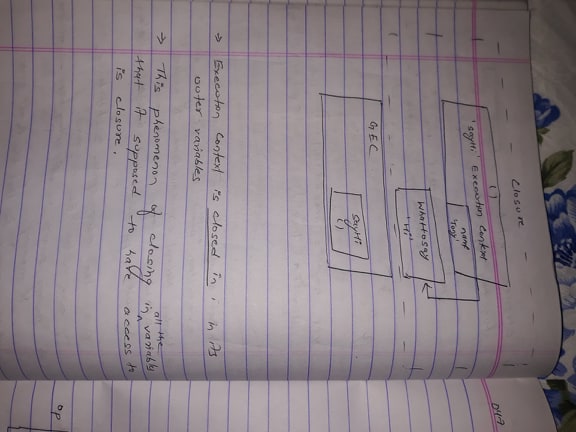 Closure
( )
'sayHi' Execution Context
name
'Tony'
Whattosay
'Hi'
GEC
sayHi
( )
→ Execution Context is closed in in its
outer variables
→ This phenomenon of closing in all the variables
that it supposed to have access to
is closure.
op